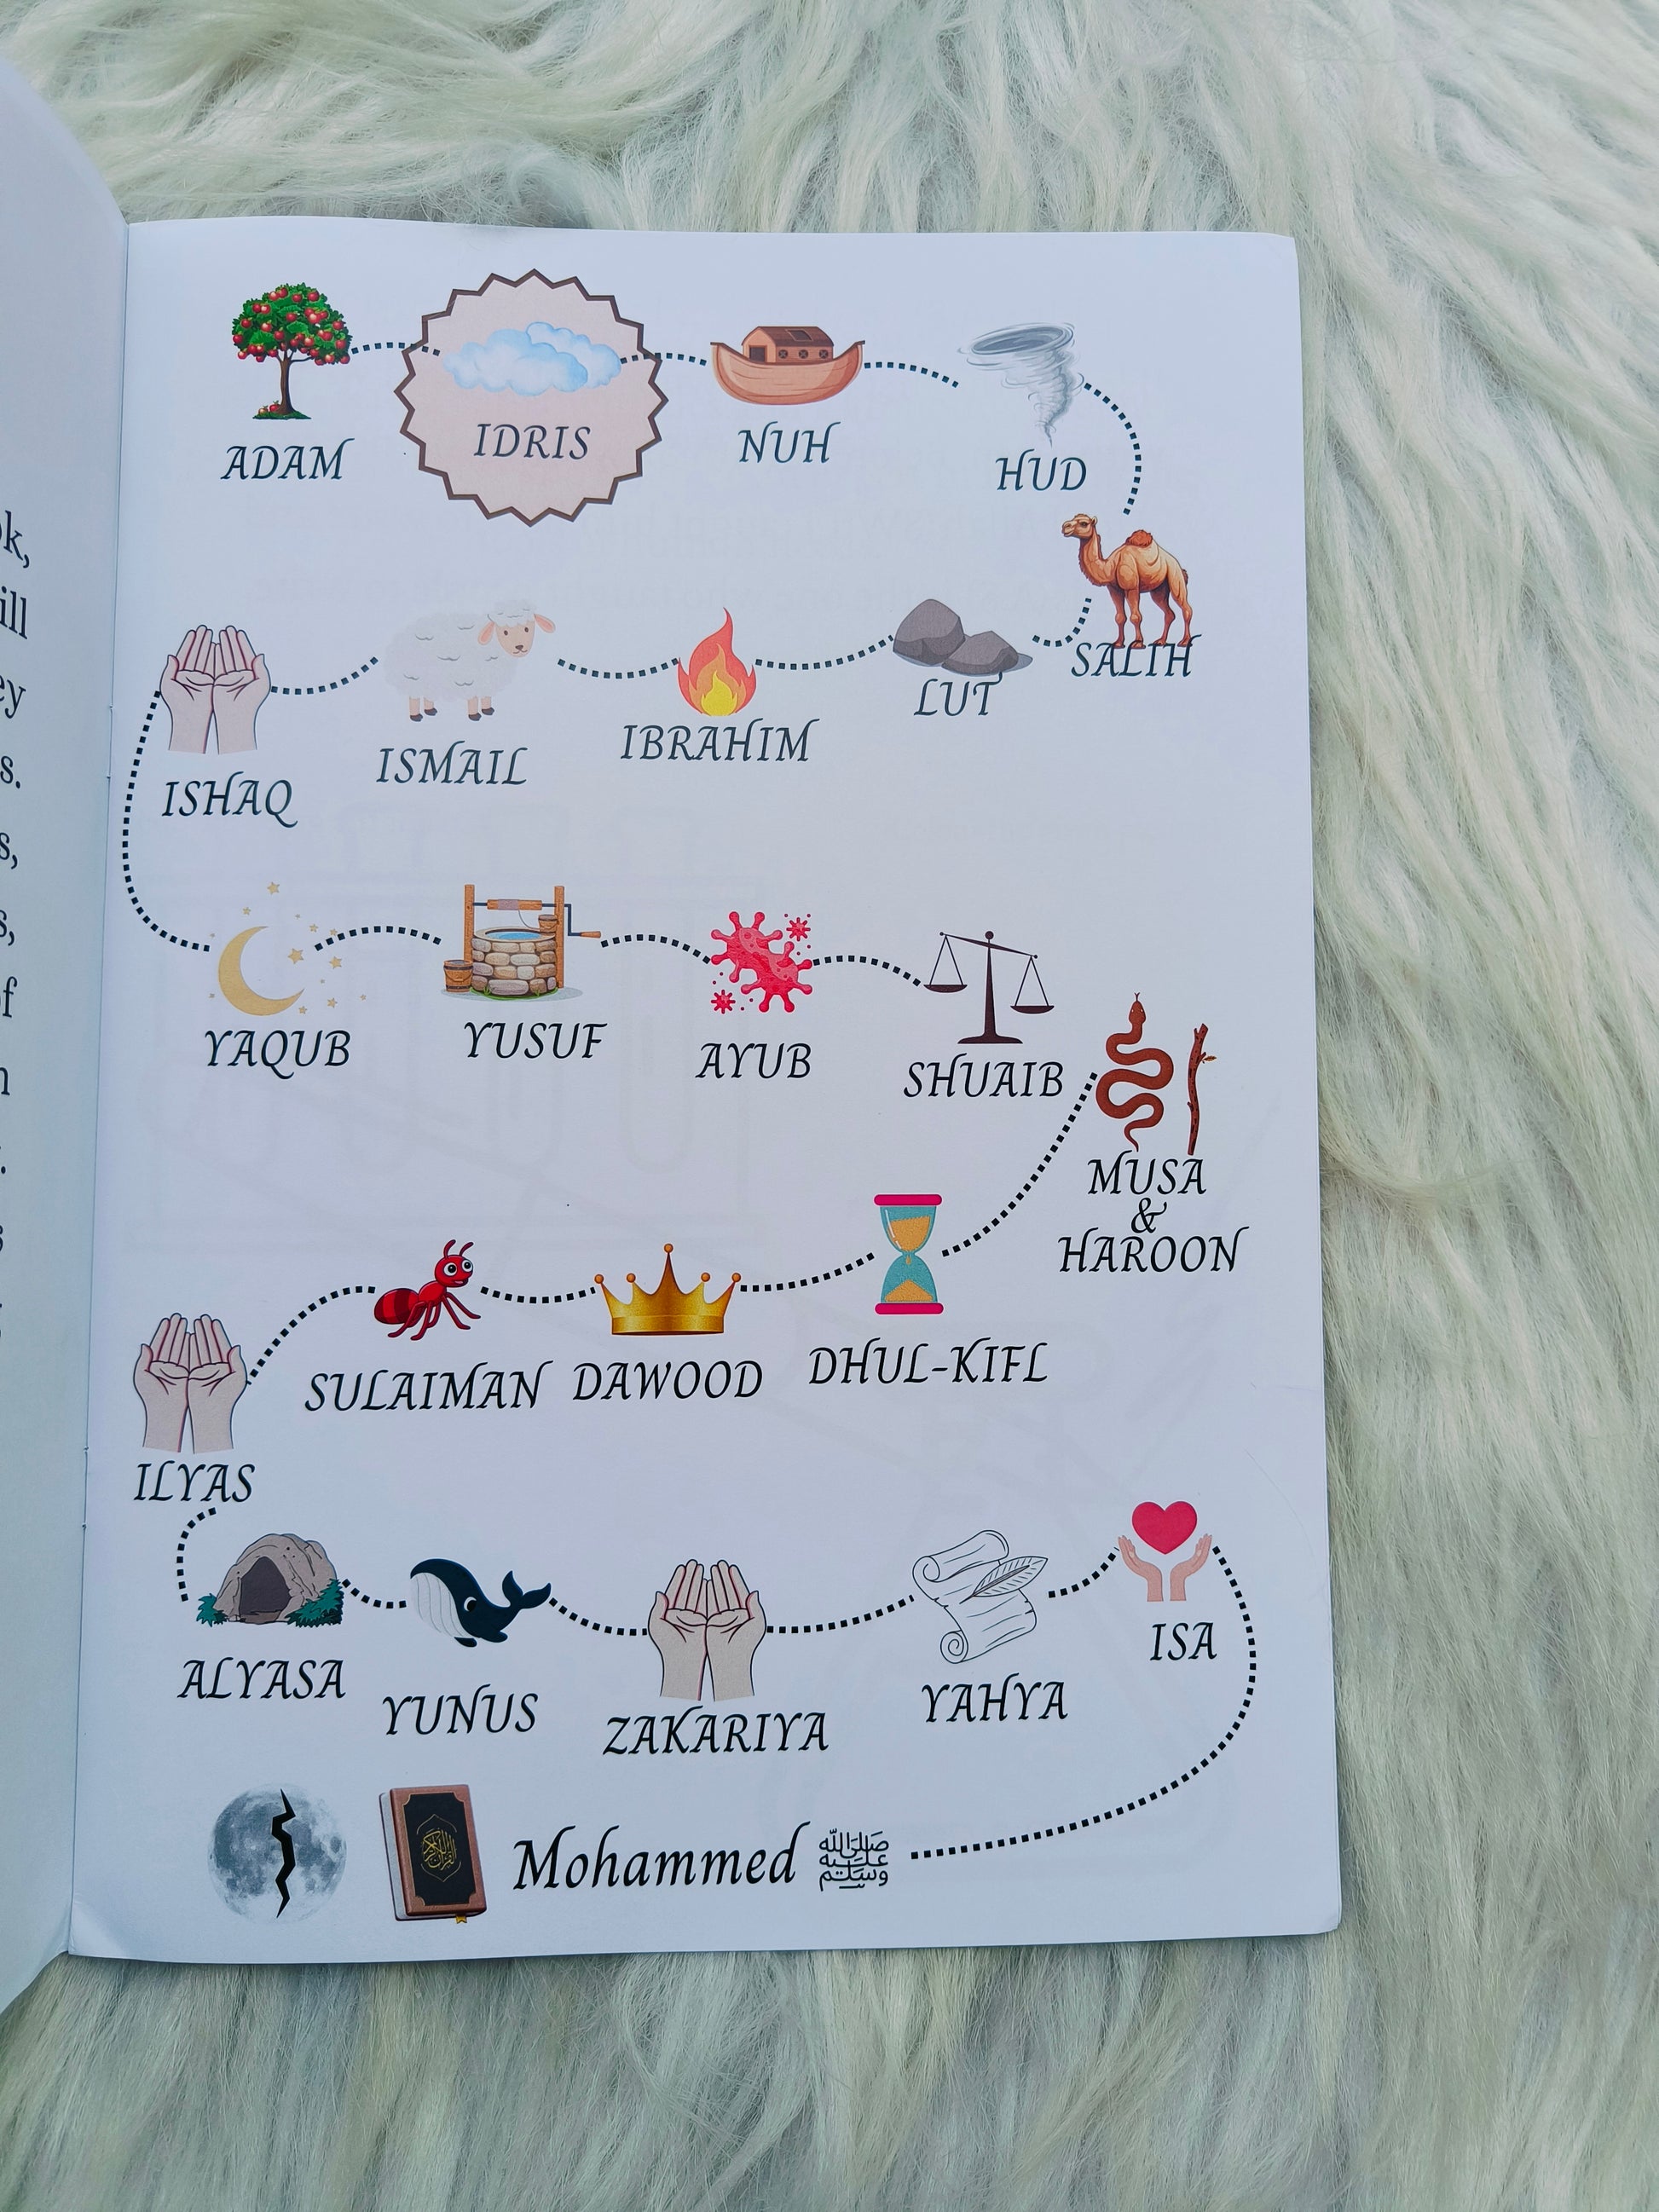 k,
ill
ey
s.
s,
s,
of
ADAM
IDRIS
NUH
HUD
SALIH
LUT
IBRAHIM
ISMAIL
ISHAQ
YAQUB
YUSUF
AYUB
SHUAIB
MUSA
&
HAROON
DHUL-KIFL
DAWOOD
SULAIMAN
ILYAS
ALYASA
YUNUS
ZAKARIYA
YAHYA
ISA
Mohammed ﷺ
القرآن الكريم